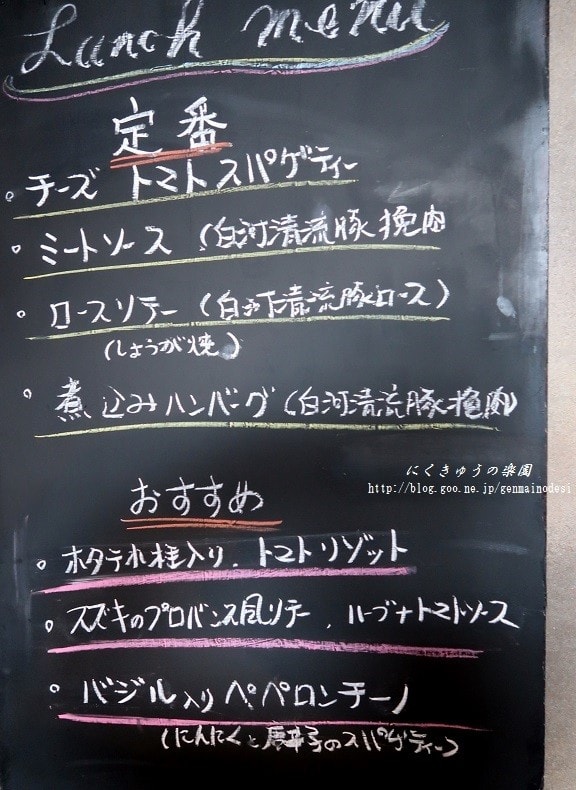 Lunch menu
定番
。チーズ トマトスパゲティー
。ミートソース (白河清流豚挽肉
。ロースソテー (白河清流豚ロース)
(しょうが焼)
。煮込みハンバーグ (白河清流豚挽肉)
にくきゅうの楽園
http://blog.goo.ne.jp/genmainodesi
おすすめ
。ホタテ貝柱入り、トマトリゾット
。スズキのプロバンス風ソテー、ハーブ+トマトソース
。バジル入りペペロンチーノ
(にんにくと唐辛子のスパゲティー)